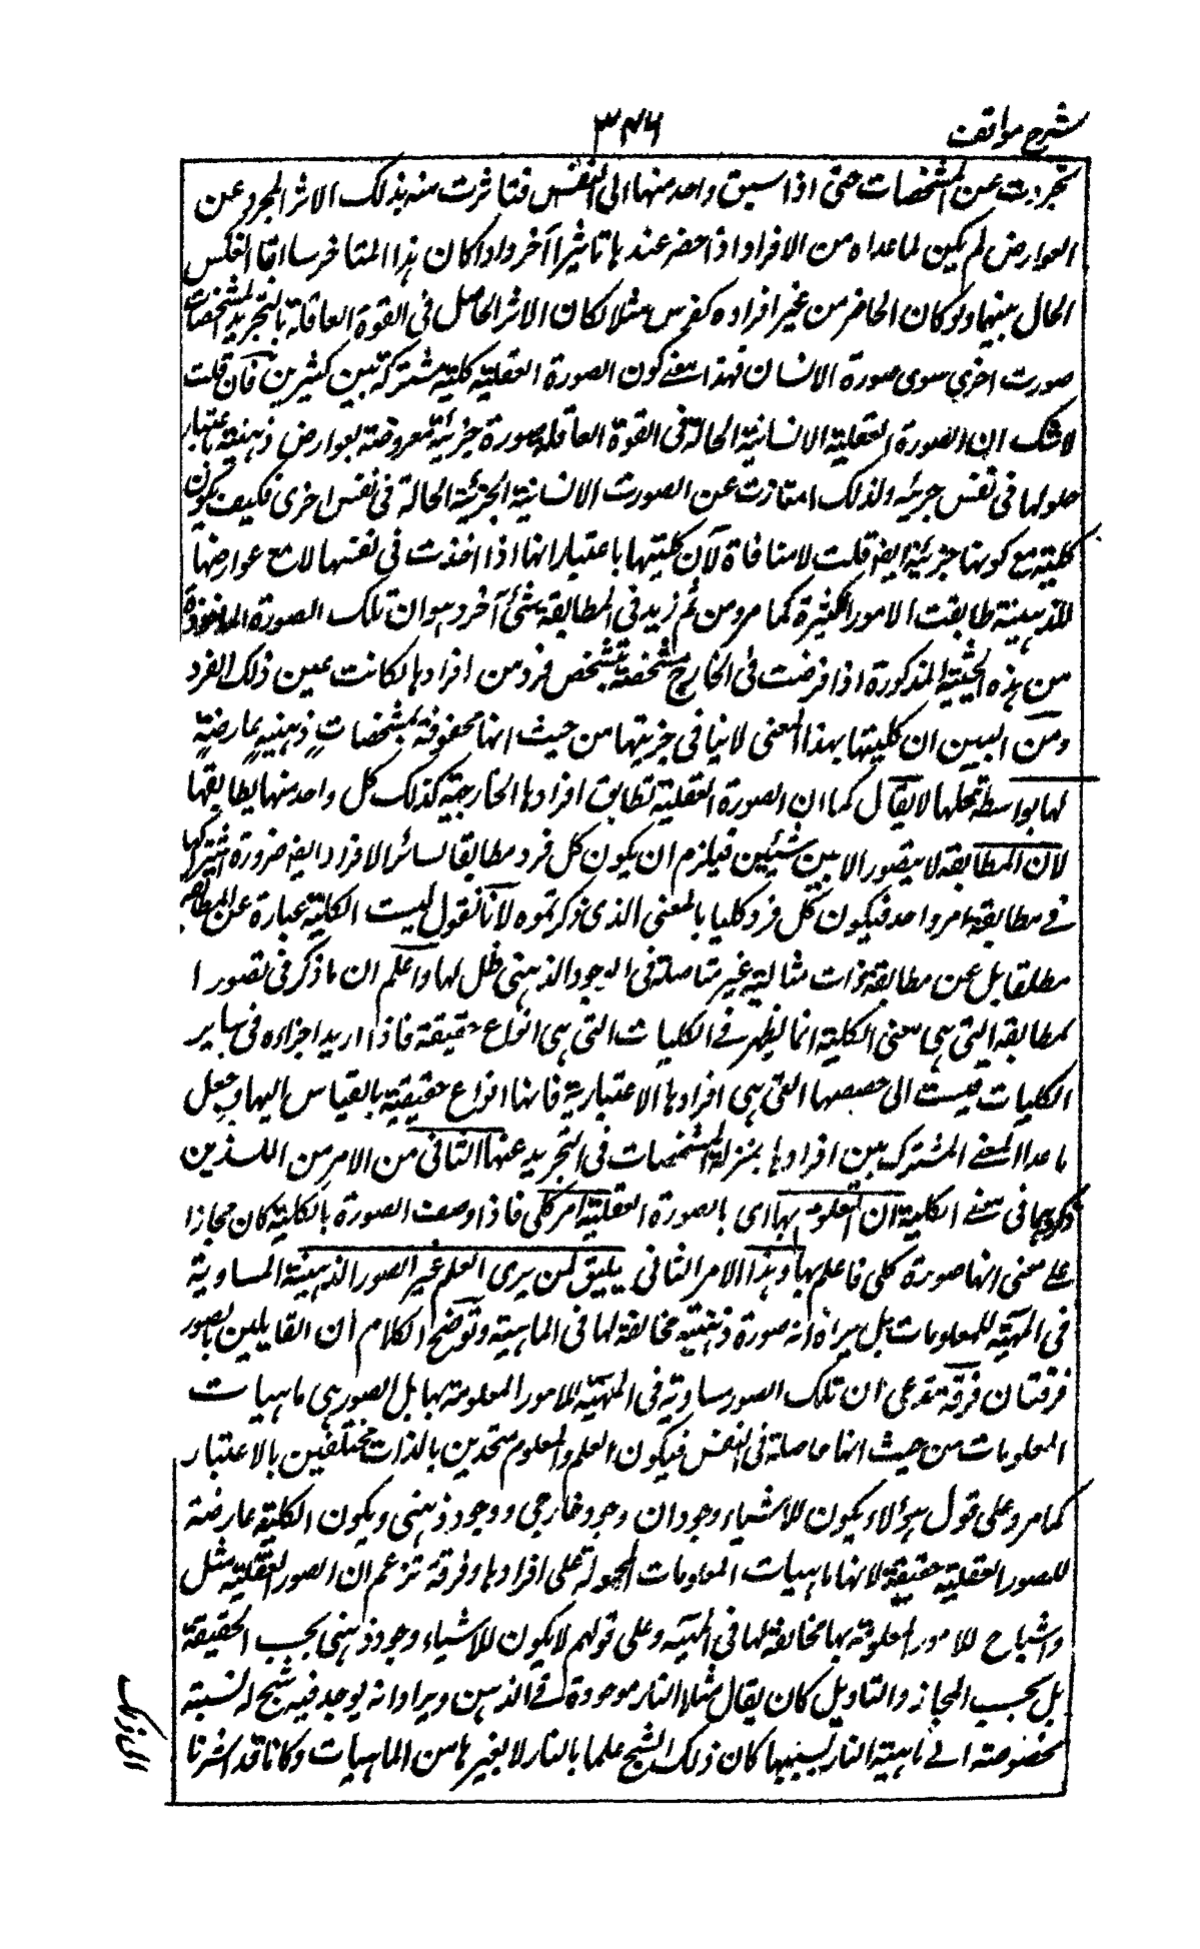 شرح مواقف
٣٤٦
تجردت عن المشخصات حتى اذا سبق واحد منها الى النفس فتاثرت منه بذلك الاثر المجرد عن
العوارض لم يكن لما عداه من الافراد اذا حضر عندها تاثيرا آخر واذا كان هذا المتاخر سابقا انعكس
الحال بينهما ولو كان الحاضر من غير افراده كفرس مثلا لكان الاثر الحاصل فى القوة العاقلة بالتجريد المشخصات
صورت اخرى سوى صورة الانسان فهذا معنے كون الصورة العقلية كلية مشتركة بين كثيرين فان قلت
لا شك ان الصورة العقلية الانسانية الحالة فى القوة العاقلة صورة جزئية معروضة بعوارض ذهنية باعتبار
حلولها فى نفس جزئية ولذلك امتازت عن الصورت الانسانية الجزئية الحالة فى نفس اخرى فكيف يكون
كلية مع كونها جزئية ايضا قلت لا منافاة لان كليتها باعتبار انها اذا اخذت فى نفسها لا مع عوارضها
الذهنية طابقت الامور الكثيرة كما مر ومن ثم زيد فى المطابقة شئ آخر وهو ان تلك الصورة الماخوذة
من هذه الحيثية المذكورة اذا فرضت فى الخارج مشخصة بتشخص فرد من افرادها لكانت عين ذلك الفرد
ومن البين ان كليتها بهذا المعنى لا ينافى جزيتها من حيث انها محفوفة بمشخصات ذهنية عارضة
لها بواسطة محلها لا يقال كما ان الصورة العقلية تطابق افرادها الخارجية كذلك كل واحد منها يطابقها
لان المطابقة لا يتصور الا بين شيئين فيلزم ان يكون كل فرد مطابقا لسائر الافراد ايضا ضرورة اشتراكها
فے مطابقة امر واحد فيكون كل فرد كليا بالمعنى الذى ذكرتموه لانا نقول ليست الكلية عبارة عن المطابقة
مطلقا بل عن مطابقة ذات مثالية غير متاصلة فى الوجود الذهنى ظل لها واعلم ان ما ذكر فى تصور ا
لمطابقة التى هى معنى الكلية انما يظهر فے الكليات التى هى انواع حقيقة فاذا اريد اجزاءه فى ساير
الكليات قيست الى حصصها التى هى افرادها الاعتبارية فانها انواع حقيقية بالقياس اليها وجعل
ما عدا المعنے المشترك بين افرادها بمنزلة المشخصات فى التجريد عنها الثانى من الامرين اللذين
ذكروهما فى معنے الكلية ان المعلوم بها اى بالصورة العقلية امر كلى فاذا وصف الصورة بالكلية كان مجازا
علے معنى انها صورة كلى فاعلم بها وهذا الامر الثانى يليق لمن يرى العلم غير الصور الذهنية المساوية
فى المهية للمعلومات بل يراه انه صورة ذهنية مخالفة لها فى الماهية وتوضيح الكلام ان القايلين بالصور
فرقتان فرقة تدعى ان تلك الصور مساوية فى المهية للامور المعلومة بها بل الصور هى ماهيات
المعلومات من حيث انها حاصلة فى النفس فيكون العلم والمعلوم متحدين بالذات مختلفين بالاعتبار
كما مر وعلى قول هؤلاء يكون للاشياء وجودان وجود خارجى ووجود ذهنى ويكون الكلية عارضة
للصور العقلية حقيقية لانها ماهيات المعلومات المحمولة على افرادها وفرقة تزعم ان الصور العقلية مثل
واشباح للامور المعلومة بها مخالفة لها فى المهية وعلى قولهم لا يكون للاشياء وجود ذهنى بحسب الحقيقة
بل بحسب المجاز والتاويل كان يقال مثلا النار موجودة فے الذهن ويراد انه يوجد فيه شبح له نسبة
مخصوصة الے ماهية النار بسببها كان ذلك الشبح علما بالنار لا بغيرها من الماهيات وكانا قد اشرنا
الى ذلك